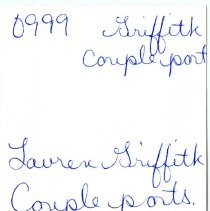 0999 Griffith
Couple port
Lauren Griffith
Couple ports.